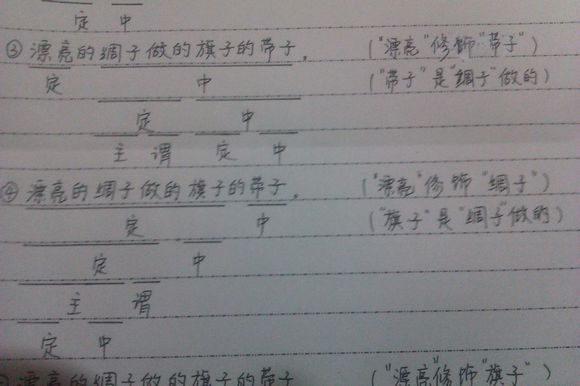 定 中
③漂亮的绸子做的旗子的带子。 ("漂亮"修饰"带子")
定 中 ("带子"是"绸子"做的)
定 中
主 谓 定 中
④漂亮的绸子做的旗子的带子。 ("漂亮"修饰"绸子")
定 中 ("旗子"是"绸子"做的)
定 中
主 谓
定 中
漂亮的绸子做的旗子的带子 ("漂亮"修饰"旗子")